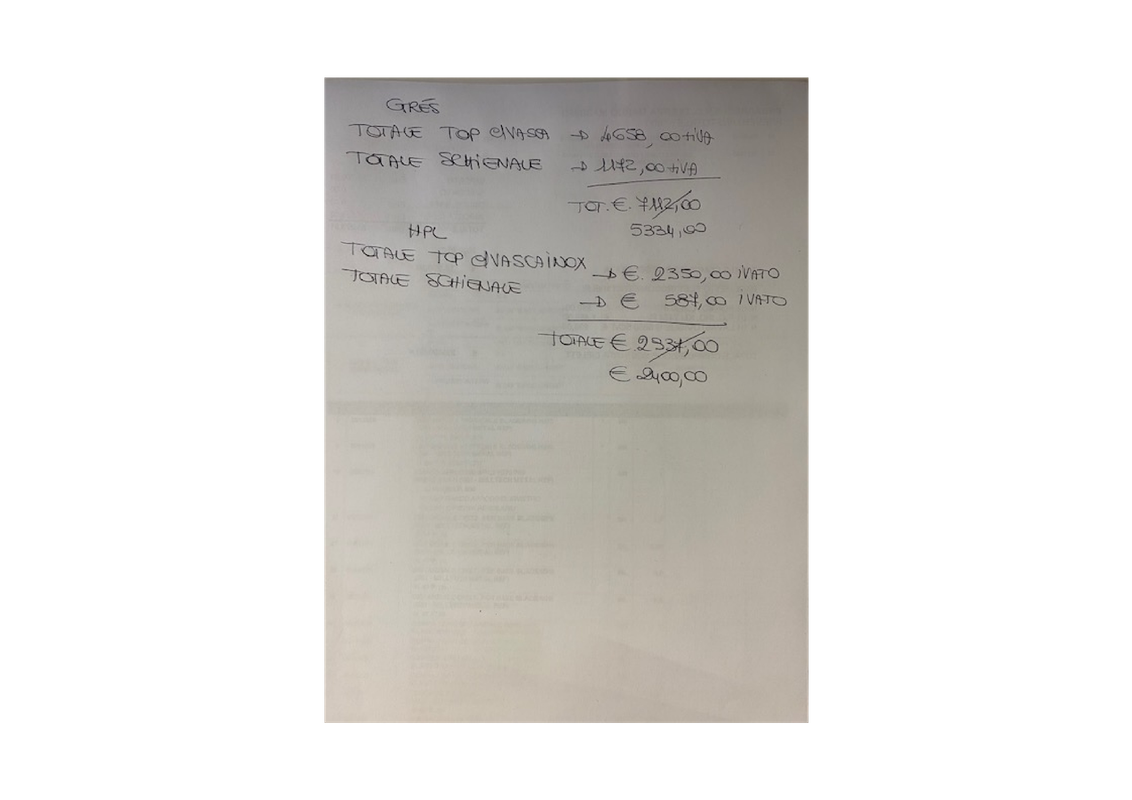 GRÉS
TOTALE TOP C/VASCA → 4658,00+IVA
TOTALE SCHIENALE → 1172,00+IVA
TOT. €. 7112,00
5334,00
HPL
TOTALE TOP C/VASCA INOX → €. 2350,00 IVATO
TOTALE SCHIENALE → € 587,00 IVATO
TOTALE € 2937,00
€ 2400,00